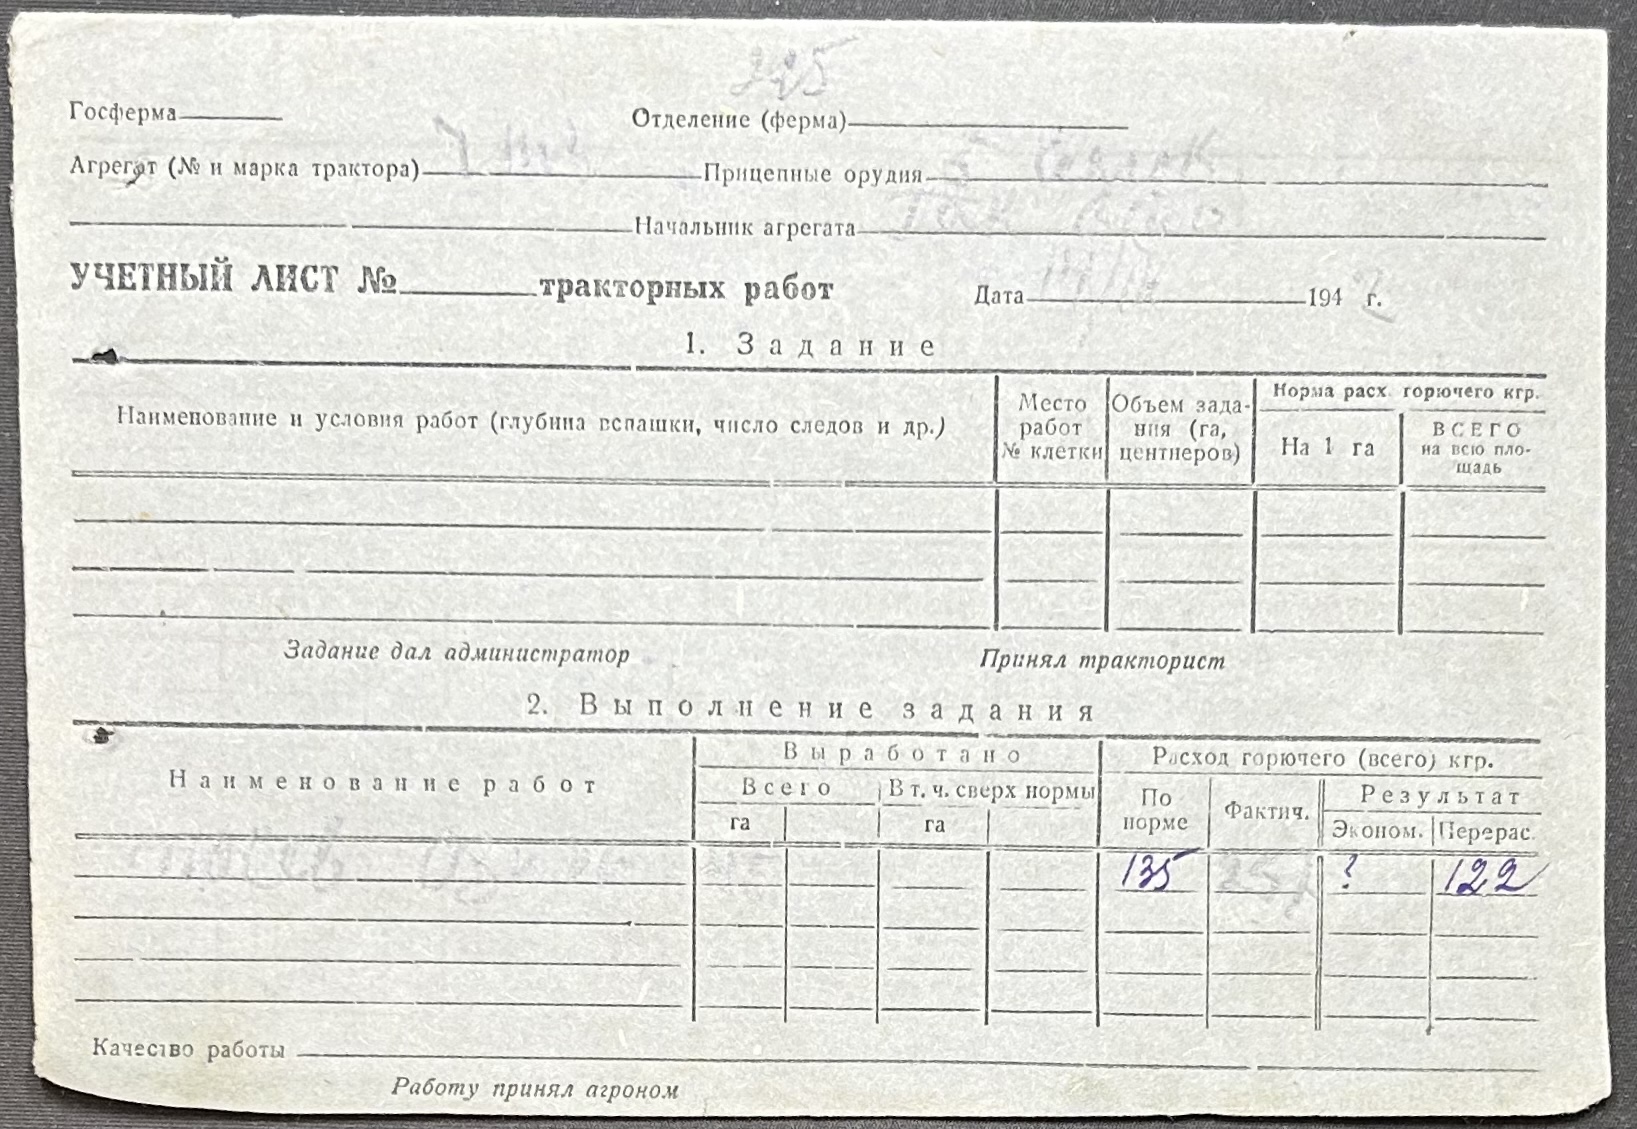 Госферма
Отделение (ферма)
Агрегат (№ и марка трактора)
Прицепные орудия
Начальник агрегата
УЧЕТНЫЙ ЛИСТ № тракторных работ
Дата 194 г.
1. Задание
Наименование и условия работ (глубина вспашки, число следов и др.)
Место работ № клетки
Объем задания (га, центнеров)
Норма расх. горючего кгр.
На 1 га
ВСЕГО на всю площадь
Задание дал администратор
Принял тракторист
2. Выполнение задания
Наименование работ
Выработано
Всего
В т. ч. сверх нормы
га
га
Расход горючего (всего) кгр.
По норме
Фактич.
Результат
Эконом.
Перерас.
135 ? 122
Качество работы
Работу принял агроном